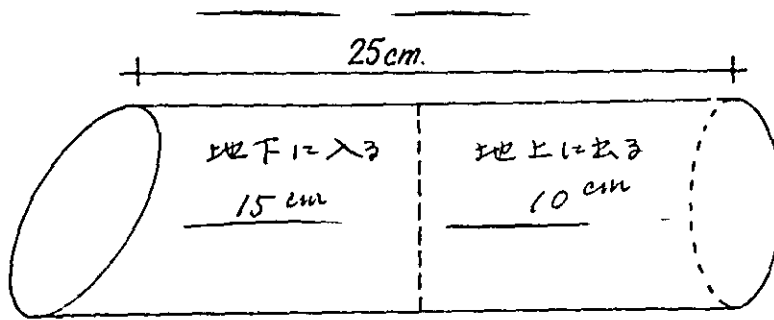 25cm.
地下に入る
15cm
地上に出る
10cm